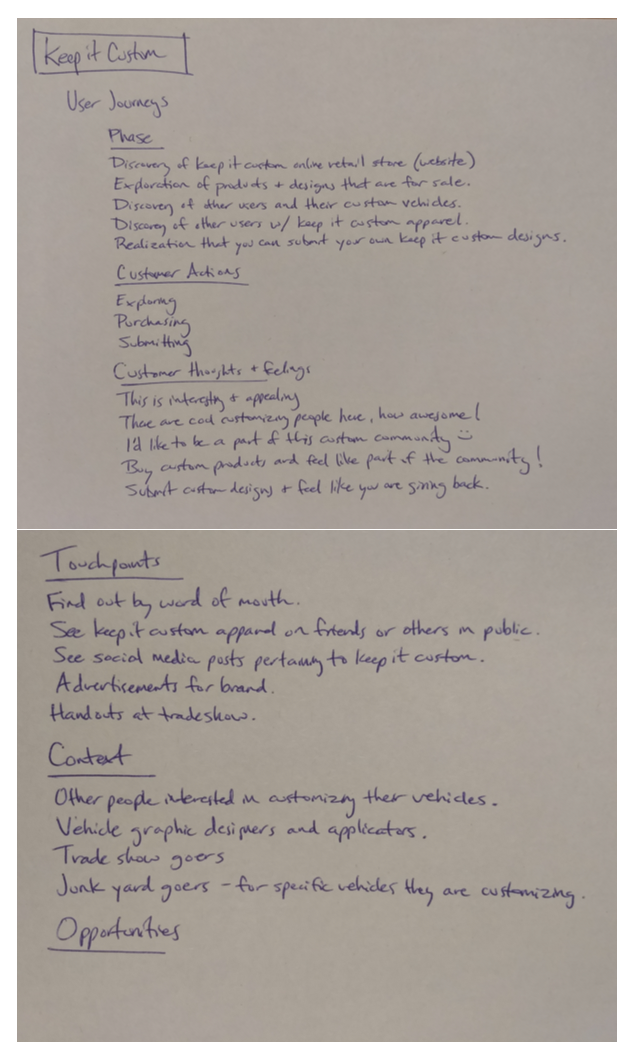 Keep it Custom
User Journeys
Phase
Discovery of keep it custom online retail store (website)
Exploration of products + designs that are for sale.
Discovery of other users and their custom vehicles.
Discovery of other users w/ keep it custom apparel.
Realization that you can submit your own keep it custom designs.
Customer Actions
Exploring
Purchasing
Submitting
Customer thoughts + feelings
This is interesting + appealing
These are cool customizing people here, how awesome!
I'd like to be a part of this custom community :)
Buy custom products and feel like part of the community!
Submit custom designs + feel like you are giving back.
Touchpoints
Find out by word of mouth.
See keep it custom apparel on friends or others in public.
See social media posts pertaining to keep it custom.
Advertisements for brand.
Handouts at tradeshow.
Context
Other people interested in customizing their vehicles.
Vehicle graphic designers and applicators.
Trade show goers
Junk yard goers - for specific vehicles they are customizing.
Opportunities